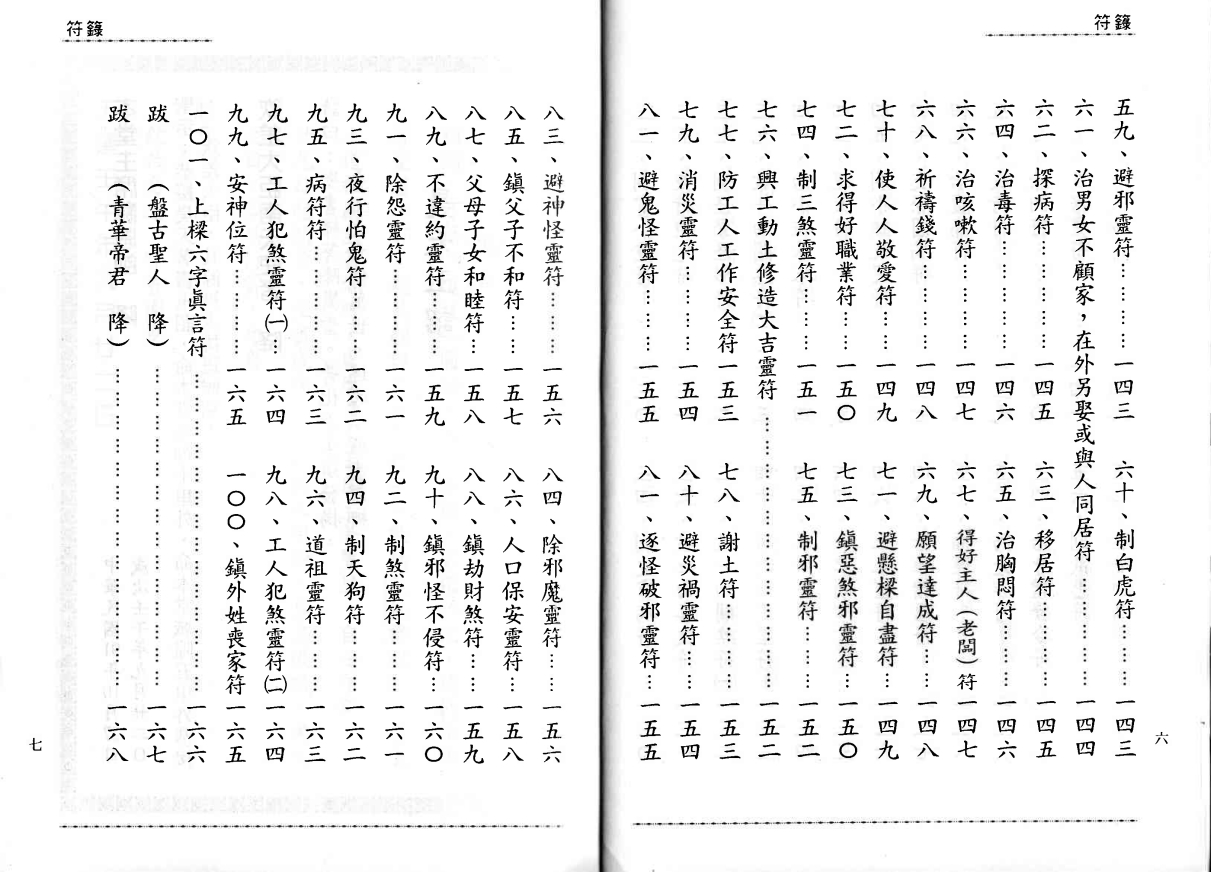 符籙
五九、避邪靈符………一四三　六十、制白虎符………一四三
六一、治男女不顧家，在外另娶或與人同居符………一四四
六二、探病符………一四五　六三、移居符………一四五
六四、治毒符………一四六　六五、治胸悶符………一四六
六六、治咳嗽符………一四七　六七、得好主人(老闆)符　一四七
六八、祈禱錢符………一四八　六九、願望達成符……一四八
七十、使人人敬愛符……一四九　七一、避懸樑自盡符…一四九
七二、求得好職業符……一五〇　七三、鎮惡煞邪靈符…一五〇
七四、制三煞靈符……一五一　七五、制邪靈符………一五二
七六、興工動土修造大吉靈符………………一五二
七七、防工人工作安全符　一五三　七八、謝土符………一五三
七九、消災靈符………一五四　八十、避災禍靈符……一五四
八一、避鬼怪靈符………一五五　八一、逐怪破邪靈符…一五五
六
符籙
八三、避神怪靈符………一五六　八四、除邪魔靈符……一五六
八五、鎮父子不和符……一五七　八六、人口保安靈符…一五八
八七、父母子女和睦符…一五八　八八、鎮劫財煞符……一五九
八九、不違約靈符………一五九　九十、鎮邪怪不侵符…一六〇
九一、除怨靈符………一六一　九二、制煞靈符………一六一
九三、夜行怕鬼符………一六二　九四、制天狗符………一六二
九五、病符符………一六三　九六、道祖靈符………一六三
九七、工人犯煞靈符㈠…一六四　九八、工人犯煞靈符㈡　一六四
九九、安神位符………一六五　一〇〇、鎮外姓喪家符　一六五
一〇一、上樑六字眞言符………………一六六
跋　(盤古聖人　降)………………一六七
跋　(青華帝君　降)………………一六八
七